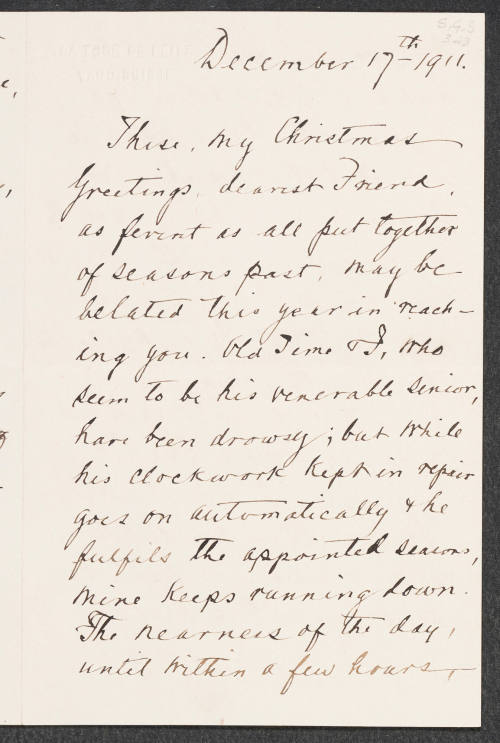 December 17th 1911.
These, my Christmas
Greetings, dearest Friend,
as fervent as all put together
of seasons past, may be
belated this year in reach-
ing you. Old Time & I, who
seem to be his venerable senior,
have been drowsy; but while
his clockwork kept in repair
goes on automatically & he
fulfils the appointed seasons,
mine keeps running down.
The nearness of the day,
until within a few hours,